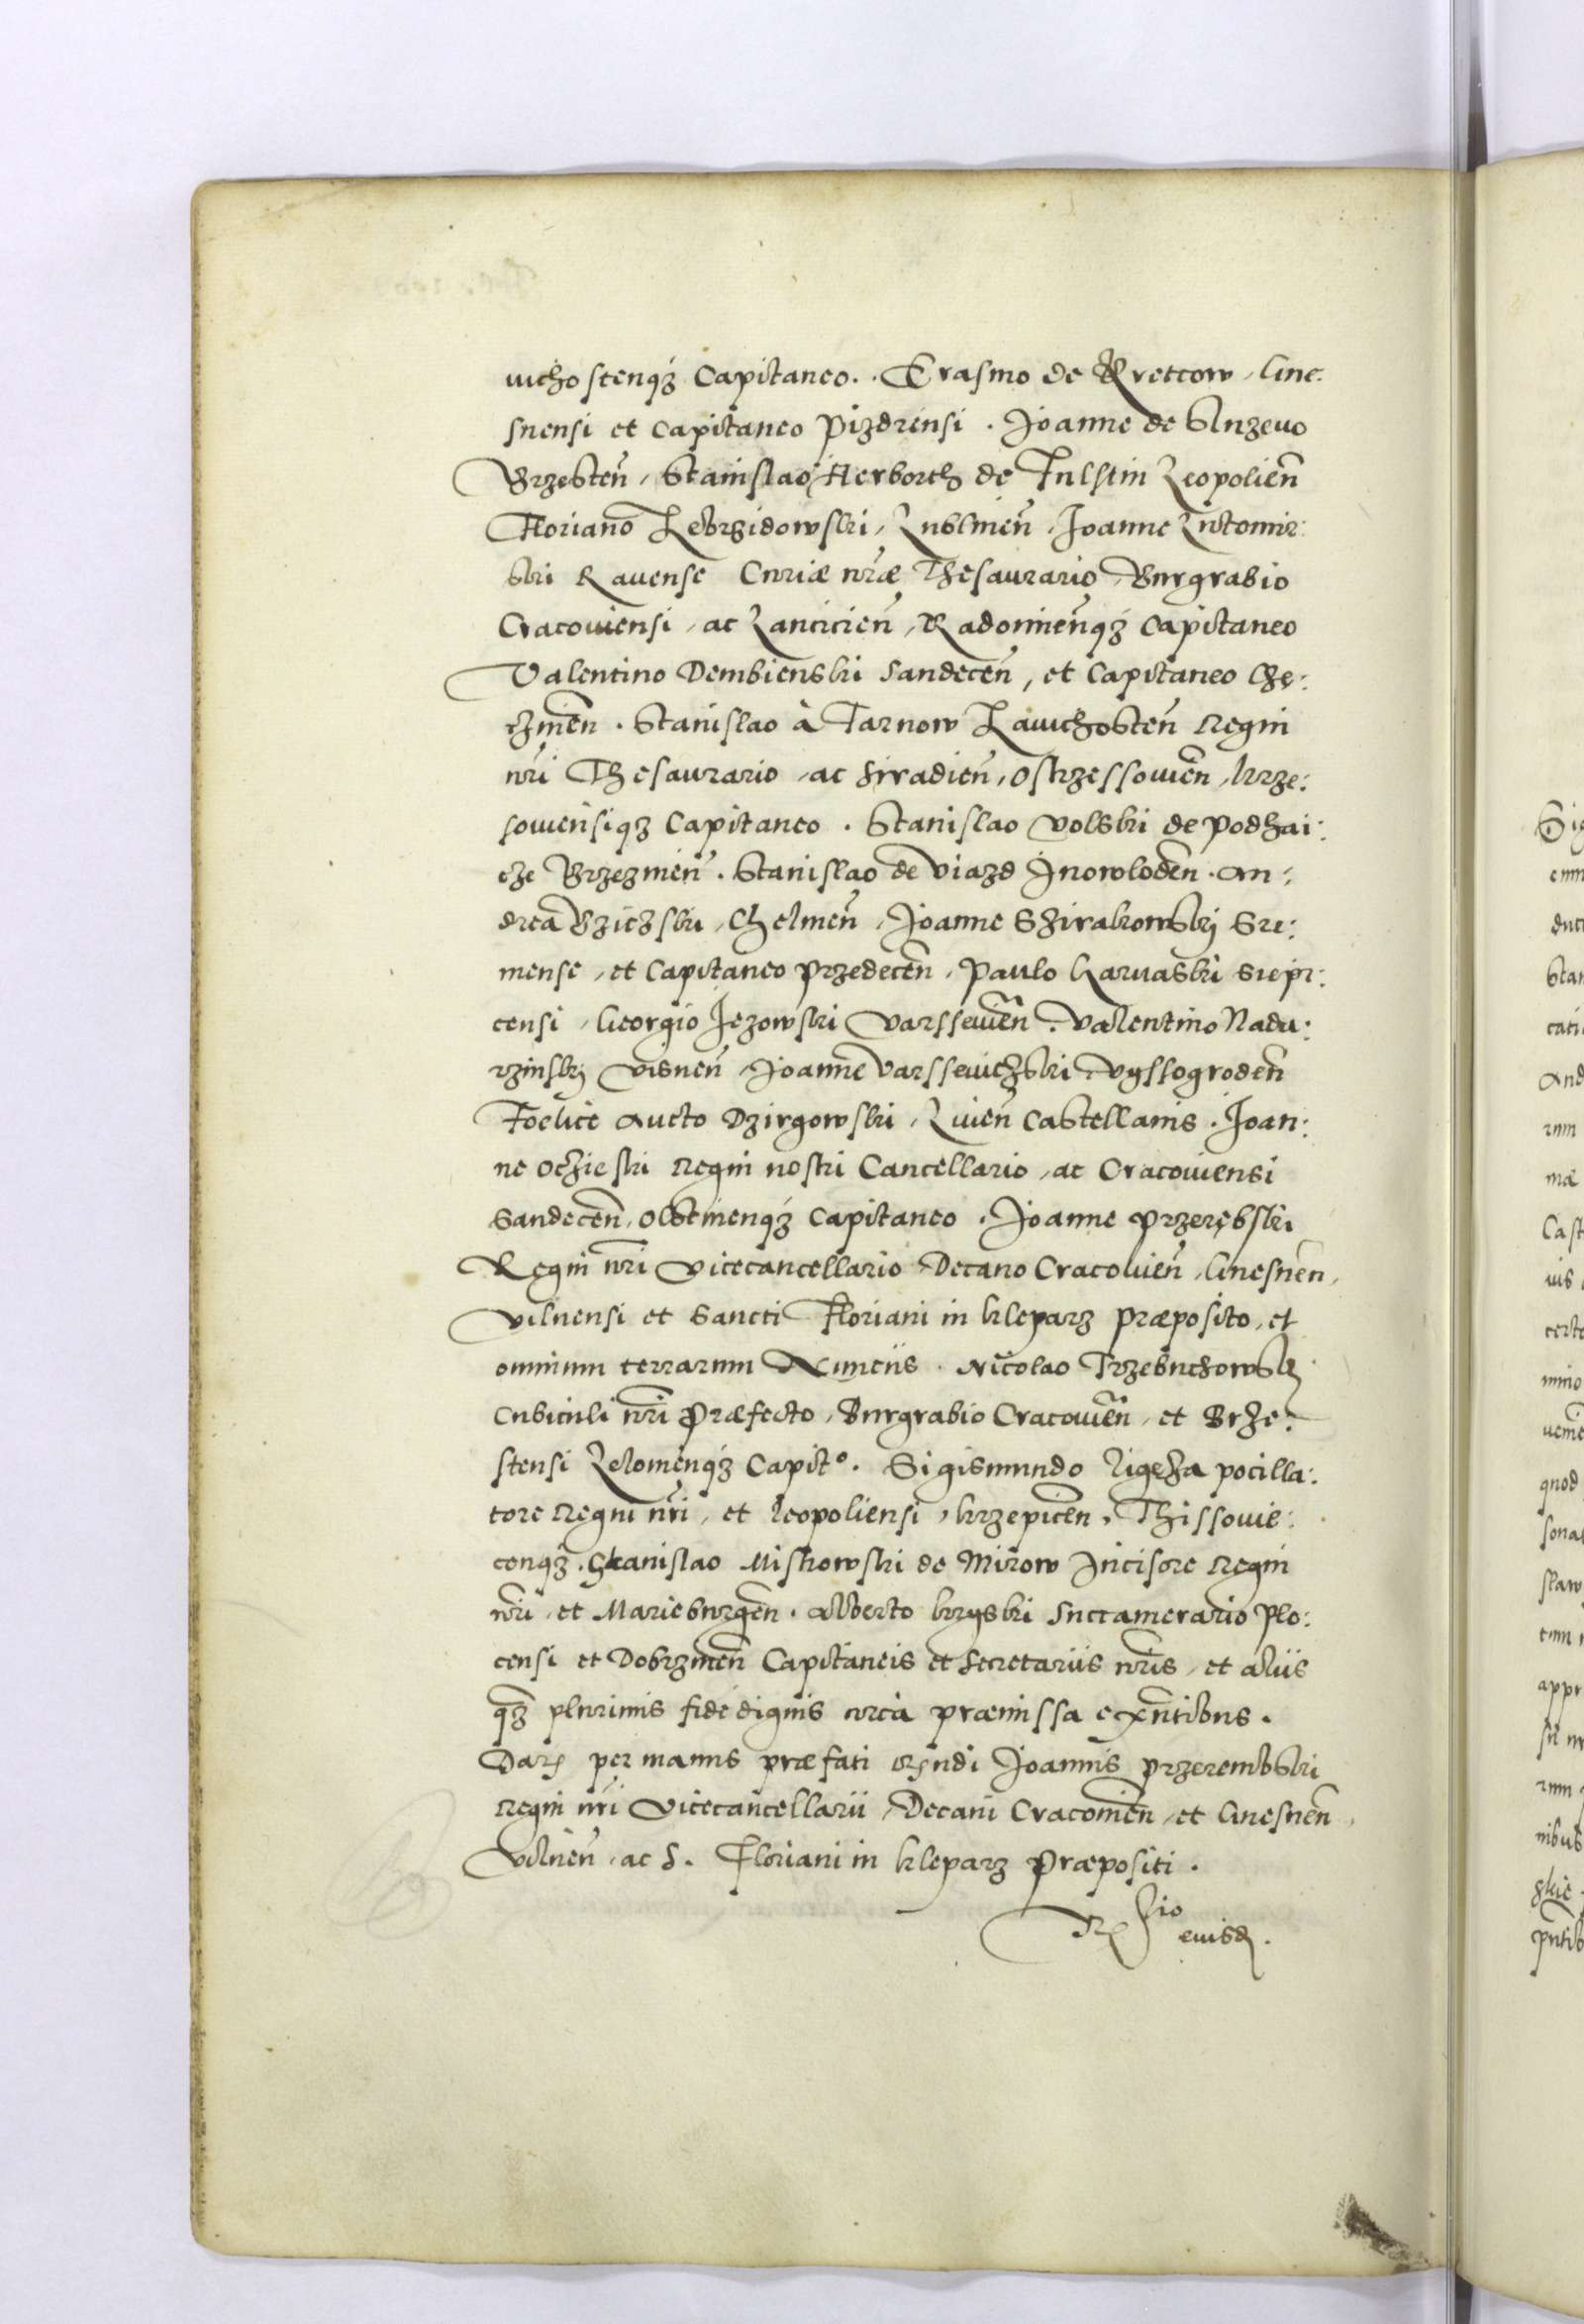 uichostenq3 Capitaneo. Erasmo de Krettow, Gne:
snensi et Capitaneo Pizdrensi. Joanne de Sluzevo
Brzesten̄, Stanislao Herborth de Fulstin Leopolien̄
Floriano Zebrzidowski, Lublinen̄, Joanne Lutomir:
ski Ravense Curiæ nr̄æ Thesaurario, Burgrabio
Cracoviensi, ac Lancicien̄, Radomien̄q3 Capitaneo
Valentino Dembienski Sandecen̄, et Capitaneo Chę:
czinen̄. Stanislao à Tarnow Zavichosten̄ Regni
nr̄i Thesaurario, ac Siradien̄, Ostrzessovien̄, Krze:
soviensiq3 Capitaneo. Stanislao Volski de Podhai:
cze Brzezinen̄. Stanislao de Viazd Inowloden̄. An:
drea Bziczski, Chelmen̄, Joanne Szirakowskÿ Sre:
mense, et Capitaneo Przedecen̄, Paulo Karnaski Siepr:
censi, Georgio Jezowski Varssevien̄. Valentino Nadu:
rzinskÿ Visnen̄, Joanne Varssevichski, Vyssogroden̄
Foelice Aucto Dzirgowski, Livien̄ Castellanis. Joan:
ne Oczieski Regni nostri Cancellario, ac Cracoviensi
Sandecen̄, Olstinenq3 Capitaneo. Joanne Przerębski
Regni nr̄i Vicecancellario Decano Cracovien̄, Gnesnen̄,
Vilnensi et Sancti Floriani in Kleparz Præposito, et
omnium terrarum Nunciis. Nicolao Trzebuchowskÿ
Cubiculi nr̄i Præfecto, Burgrabio Cracovien̄, et Brze:
stensi Zelomenq3 Capitº. Sigismundo Ligęza pocilla:
tore Regni nr̄i, et Leopoliensi, Krzepicen̄, Thissovie:
cenq3. Stanislao Miskowski de Mirow Incisore Regni
nr̄i, et Marieburgen̄. Alberto Krÿski Succamerario Plo:
censi et Dobrzinen̄ Capitaneis et Secretariis nr̄is, et aliis
q̄3 plurimis fide dignis circa præmissa exn̄tibus.
Dat per manus præfati Rndi Joannis Przerembski
Regni nr̄i Vicecancellarii, Decani Cracovien̄, et Gnesnen̄,
Vilnen̄, ac S. Floriani in Kleparz Præpositi.
R͞elatio
eiusd.